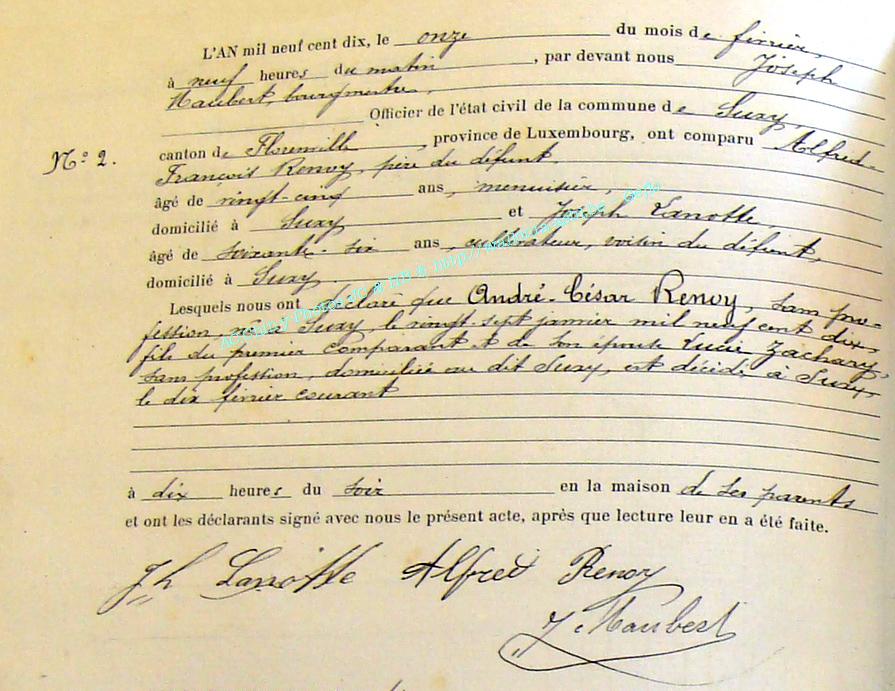 L'AN mil neuf cent dix, le onze du mois de février,
à neuf heures du matin, par devant nous Joseph
Maubert, bourgmestre,
Officier de l'état civil de la commune de Suxy,
N° 2. canton de Florenville, province de Luxembourg, ont comparu Alfred-
François Renoy, père du défunt
âgé de vingt-cinq ans, menuisier,
domicilié à Suxy et Joseph Lanotte,
âgé de soixante-six ans, cultivateur, voisin du défunt,
domicilié à Suxy.
Lesquels nous ont déclaré que André-César Renoy, sans pro-
fession, né à Suxy, le vingt-sept janvier mil neuf cent dix,
fils du premier comparant et de son épouse Lucie Zachary,
sans profession, domiciliée au dit Suxy, est décédé à Suxy,
le dix février courant
à dix heures du soir en la maison de ses parents
et ont les déclarants signé avec nous le présent acte, après que lecture leur en a été faite.
Jh Lanotte Alfred Renoy
J. Maubert